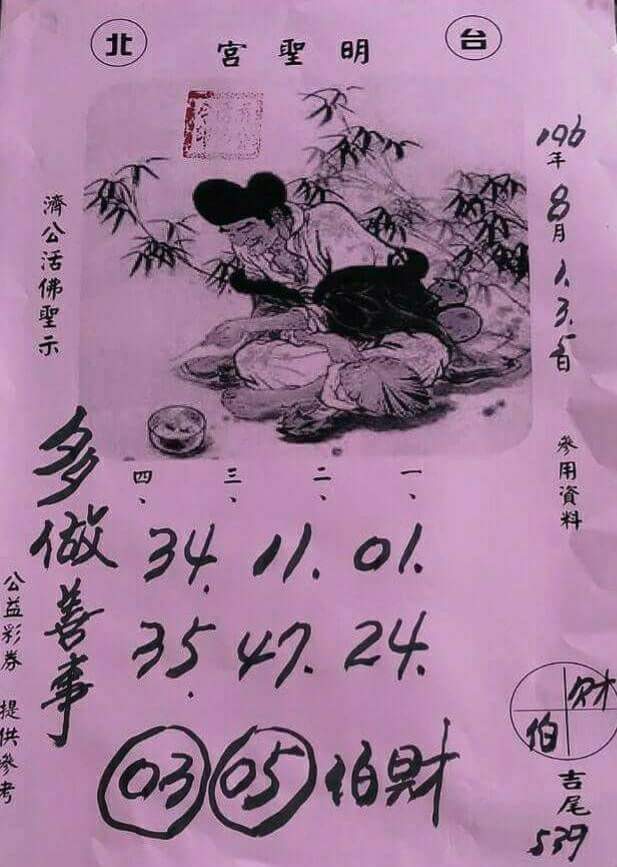 北 明聖宮 台
106年8月1.3.5日
參用資料
濟公活佛聖示
一、二、三、四、
01. 11. 34.
24. 47. 35.
03 05 伯財
多做善事
公益彩券 提供參考
財
伯
吉尾
539